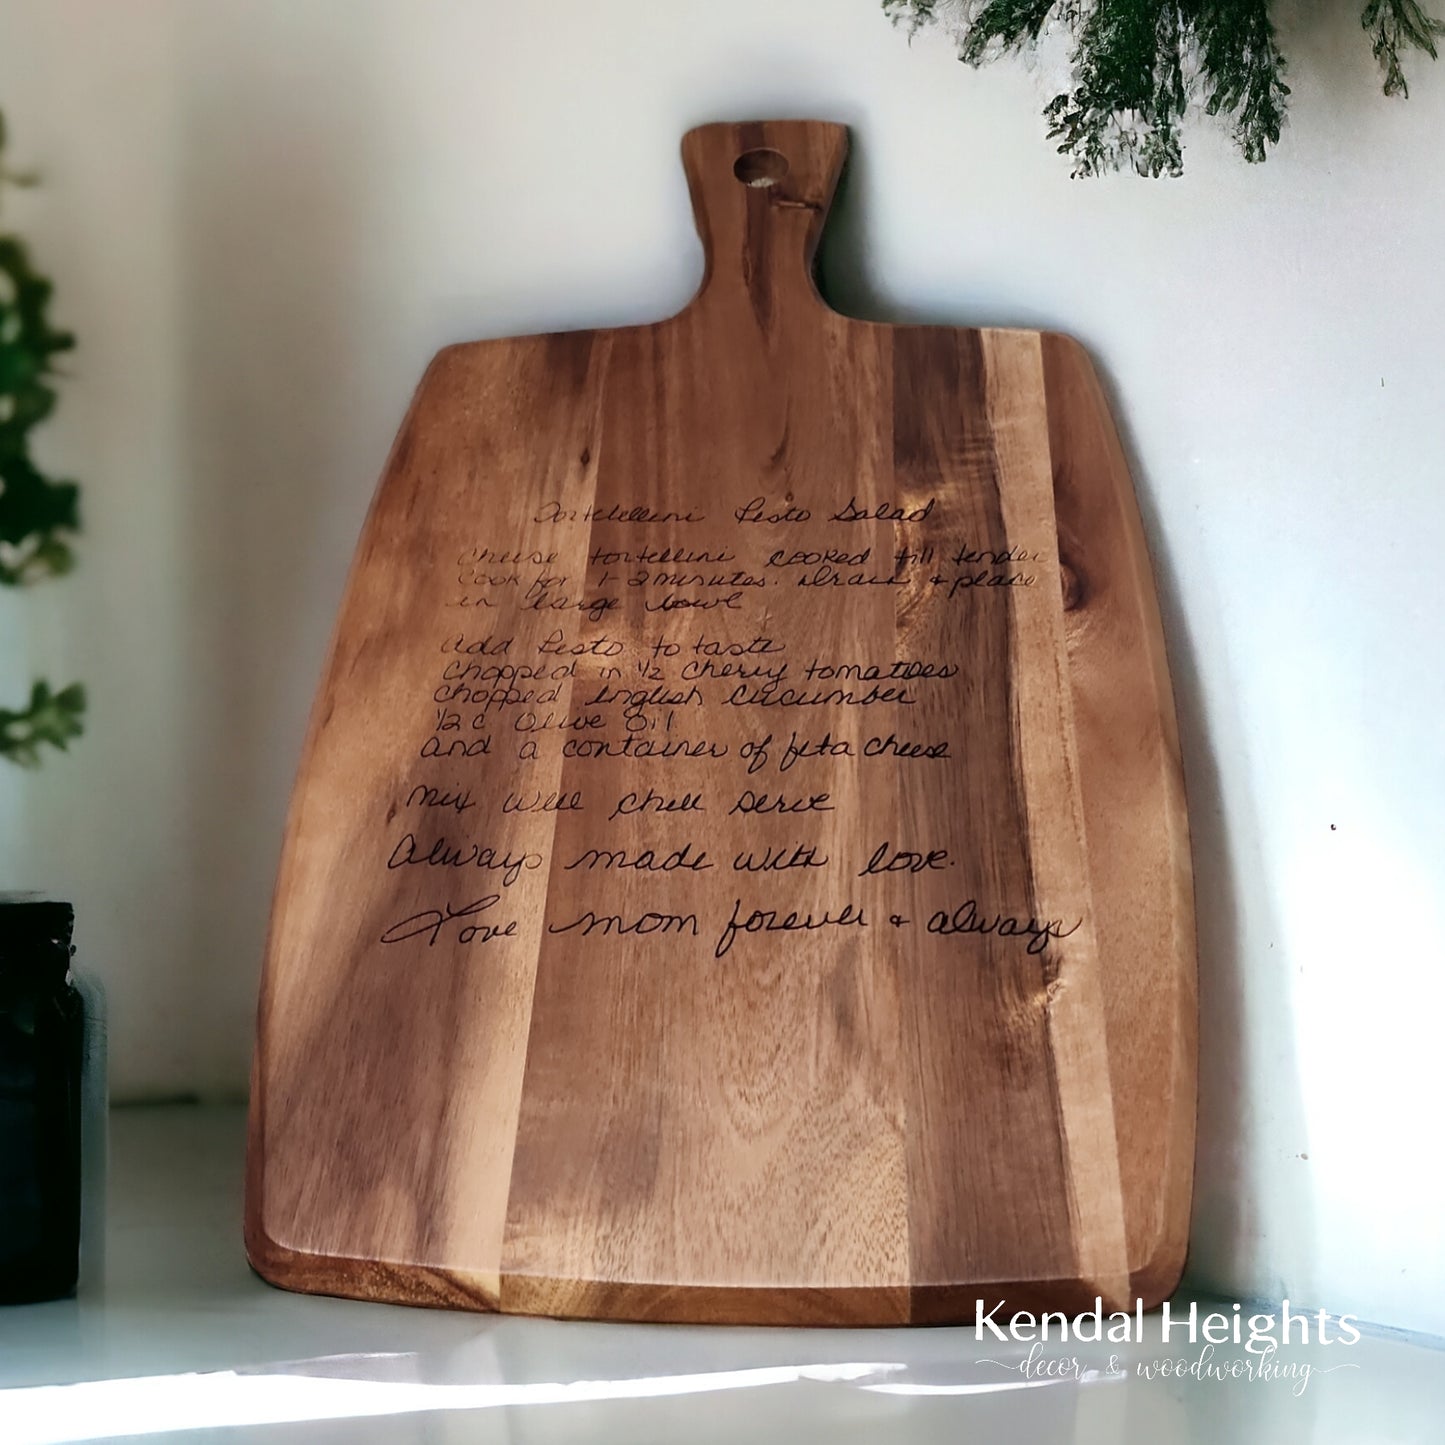 Tortellini Pesto Salad
Cheese tortellini cooked till tender
Cook for 1-2 minutes. Drain + place
in large bowl
Add Pesto to taste
Chopped in 1/2 cherry tomatoes
Chopped English Cucumber
1/2 c Olive Oil
and a container of feta cheese
Mix well chill serve
Always made with love.
Love mom forever + always
Kendal Heights
decor & woodworking